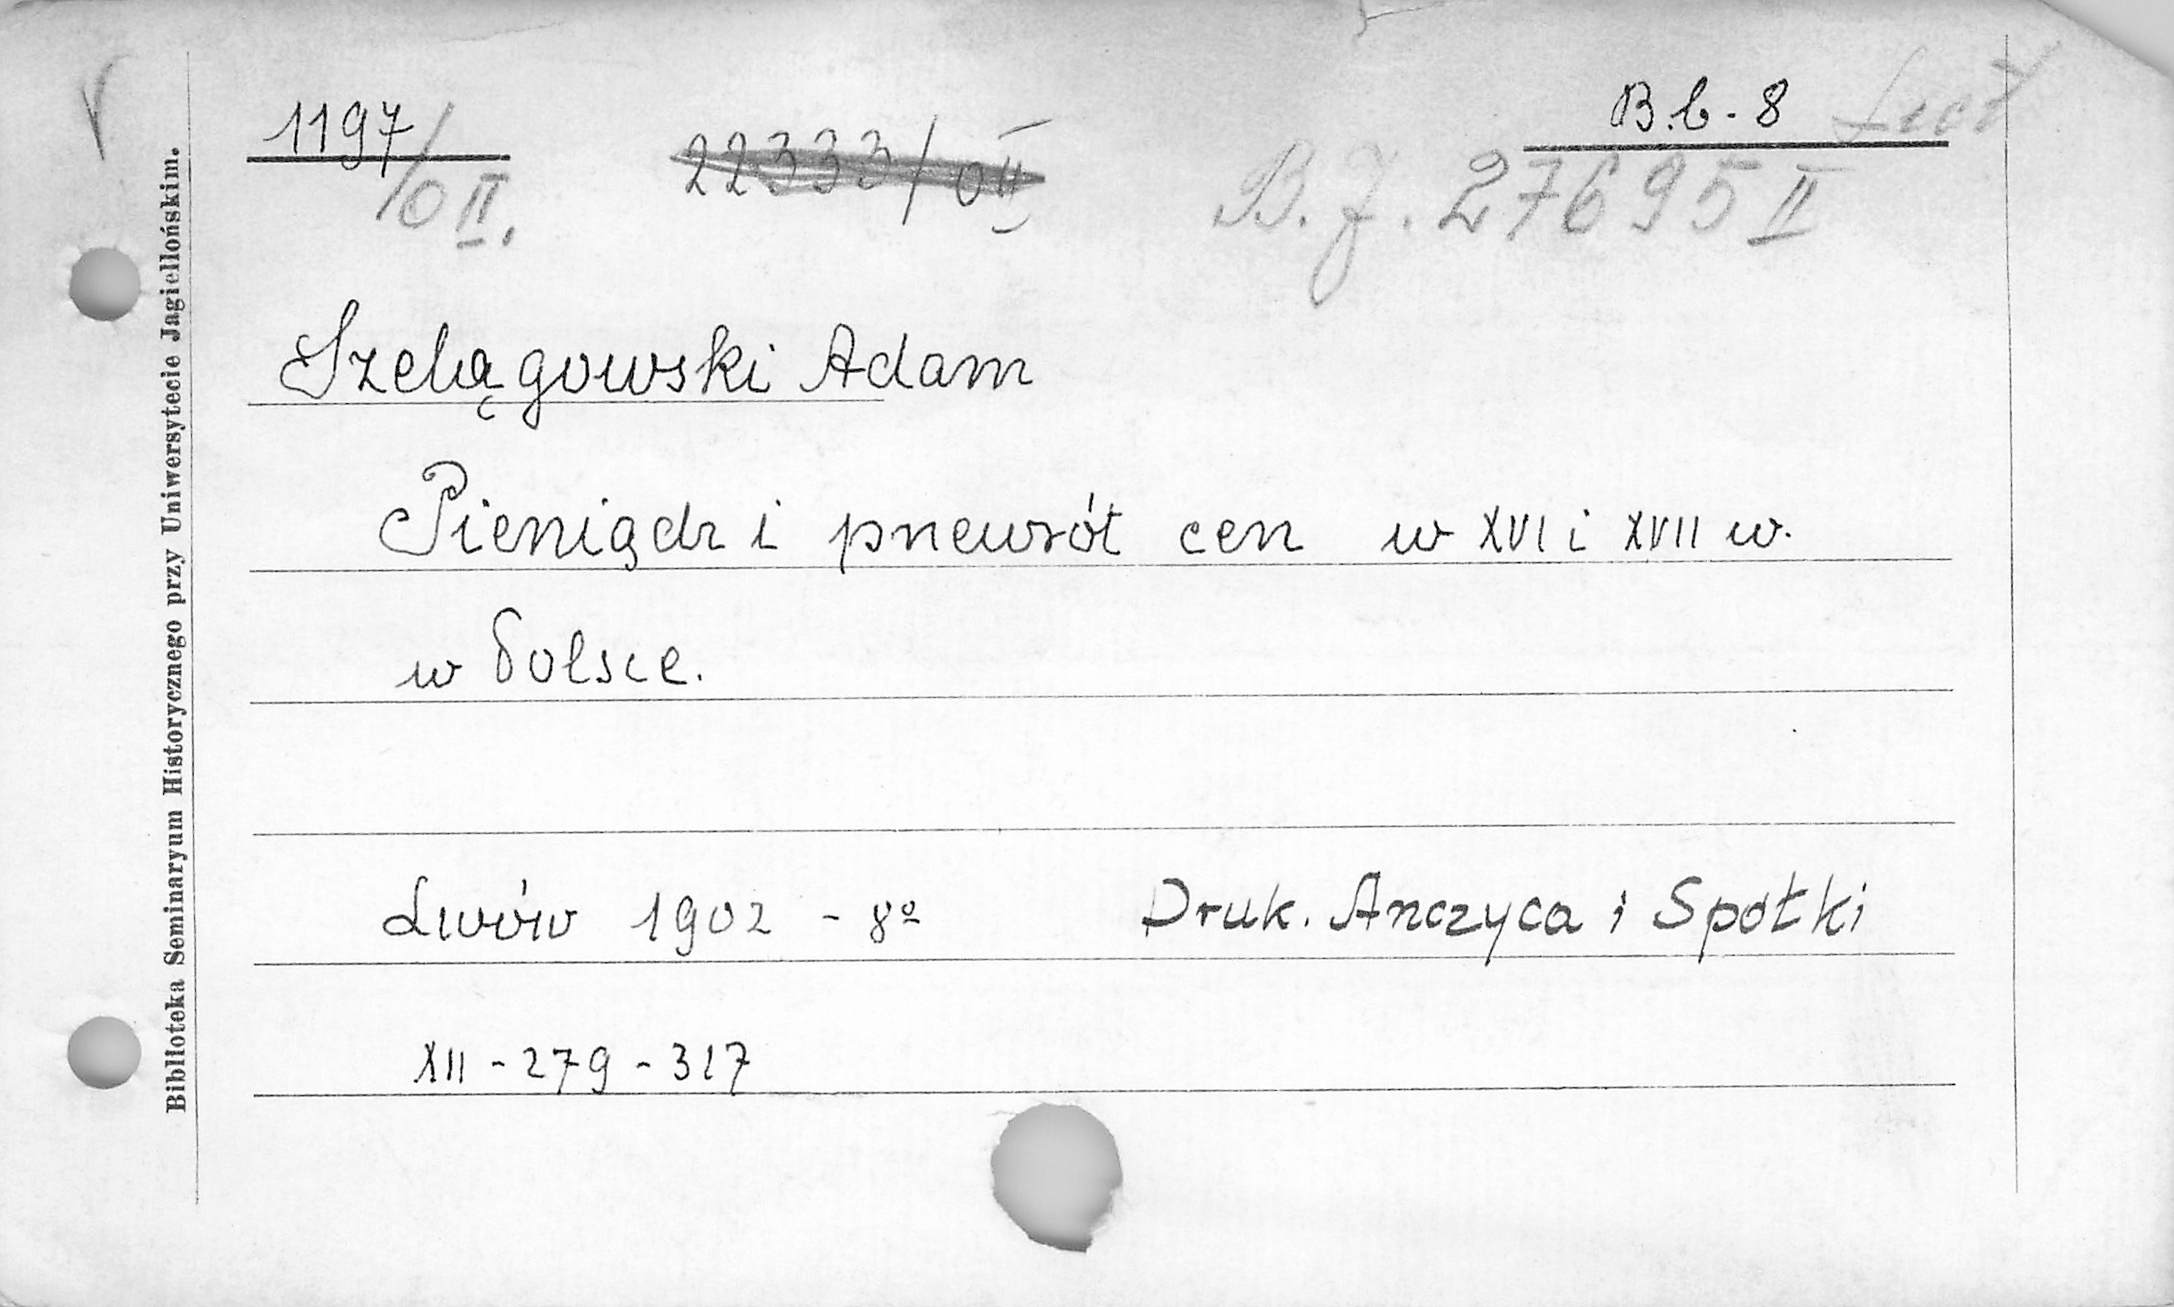 1197/OII. 22333/OII B.b-8
B.J. 27695 II
Szelągowski Adam
Pieniądz i przewrót cen w XVI i XVII w.
w Polsce.
Lwów 1902 - 8º Druk. Anczyca i Spółki
XII - 279 - 317
Biblioteka Seminaryum Historycznego przy Uniwersytecie Jagiellońskim.